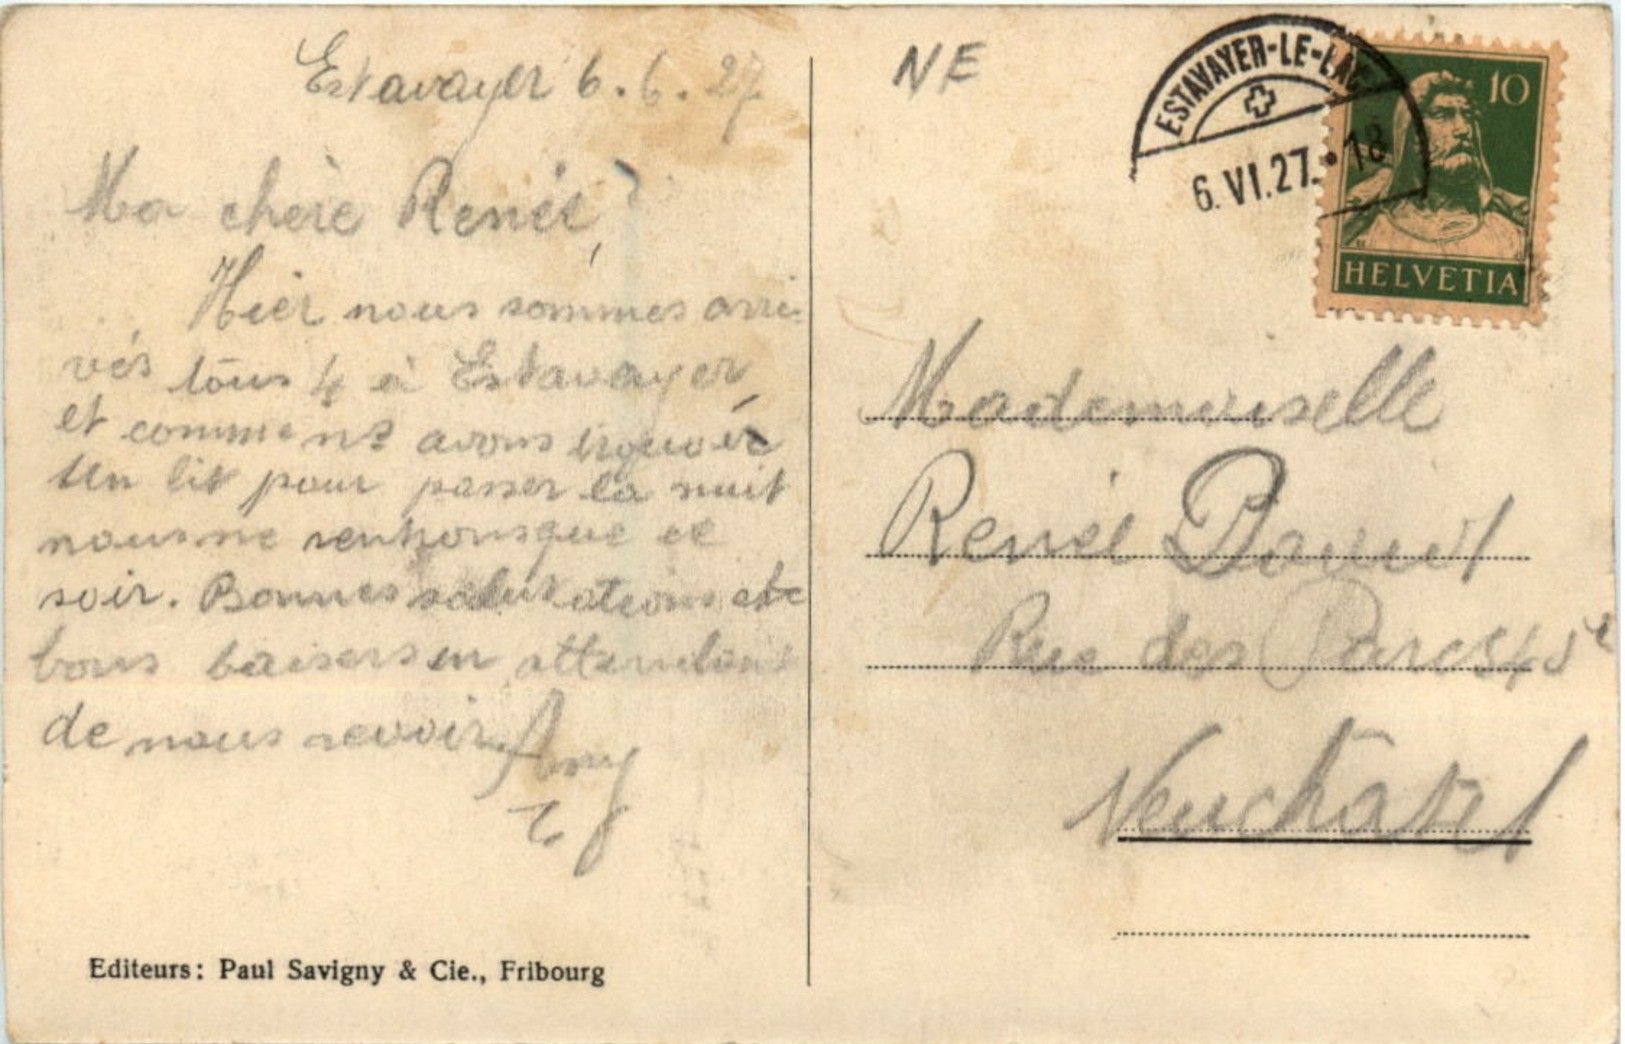 Estavayer 6.6.27
Ma chère Renée,
Hier nous sommes arri-
vés tous 4 à Estavayer
et comme ns avons trouvé
un lit pour passer la nuit
nous ne rentrons que ce
soir. Bonnes salutations et
bons baisers en attendant
de nous revoir.
Editeurs: Paul Savigny & Cie., Fribourg
NE
ESTAVAYER-LE-LAC
6.VI.27.•18
10
HELVETIA
Mademoiselle
Renée
Rue des Parcs
Neuchâtel